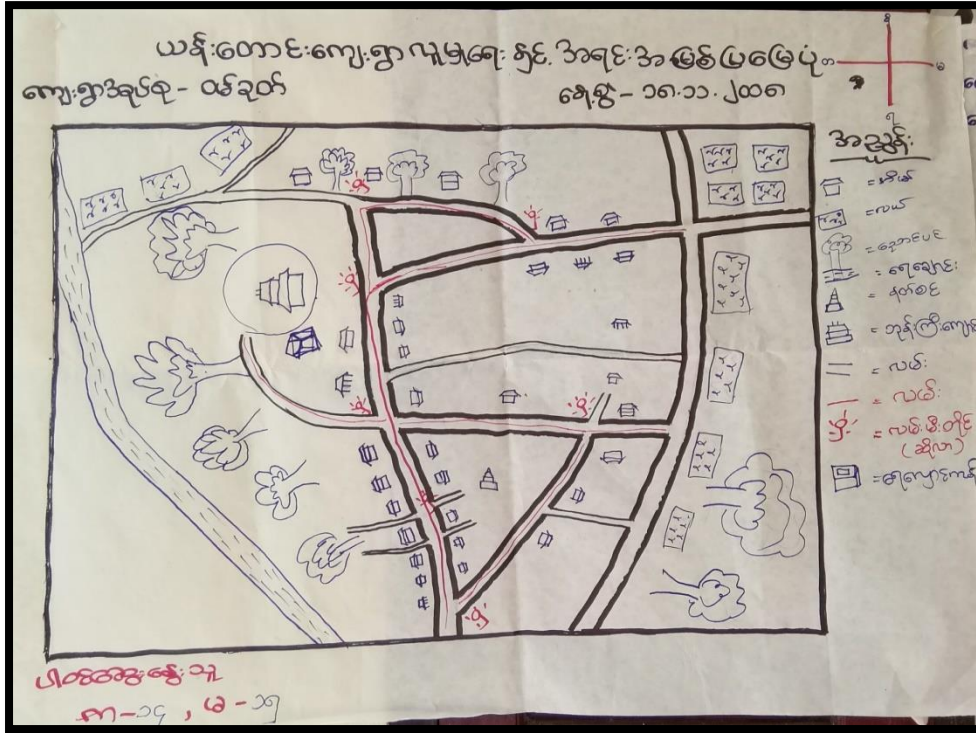 ယန်းတောင်းကျေးရွာလူမှုရေးနှင့်အရင်းအမြစ်ပြမြေပုံ
ကျေးရွာအုပ်စု - ဝမ်ခုတ်
နေ့စွဲ - ၁၈.၁၁.၂၀၁၈
အညွှန်း
= အိမ်
= လယ်
= ရေချောင်း
= နတ်စင်
= ဘုန်းကြီးကျောင်း
= လမ်း
= လမ်း
= လမ်းမီးတိုင်
(ဆိုလာ)
ပါဝင်ဆွေးနွေးသူ
ကျာ - ၁၄ , မ - ၁၅